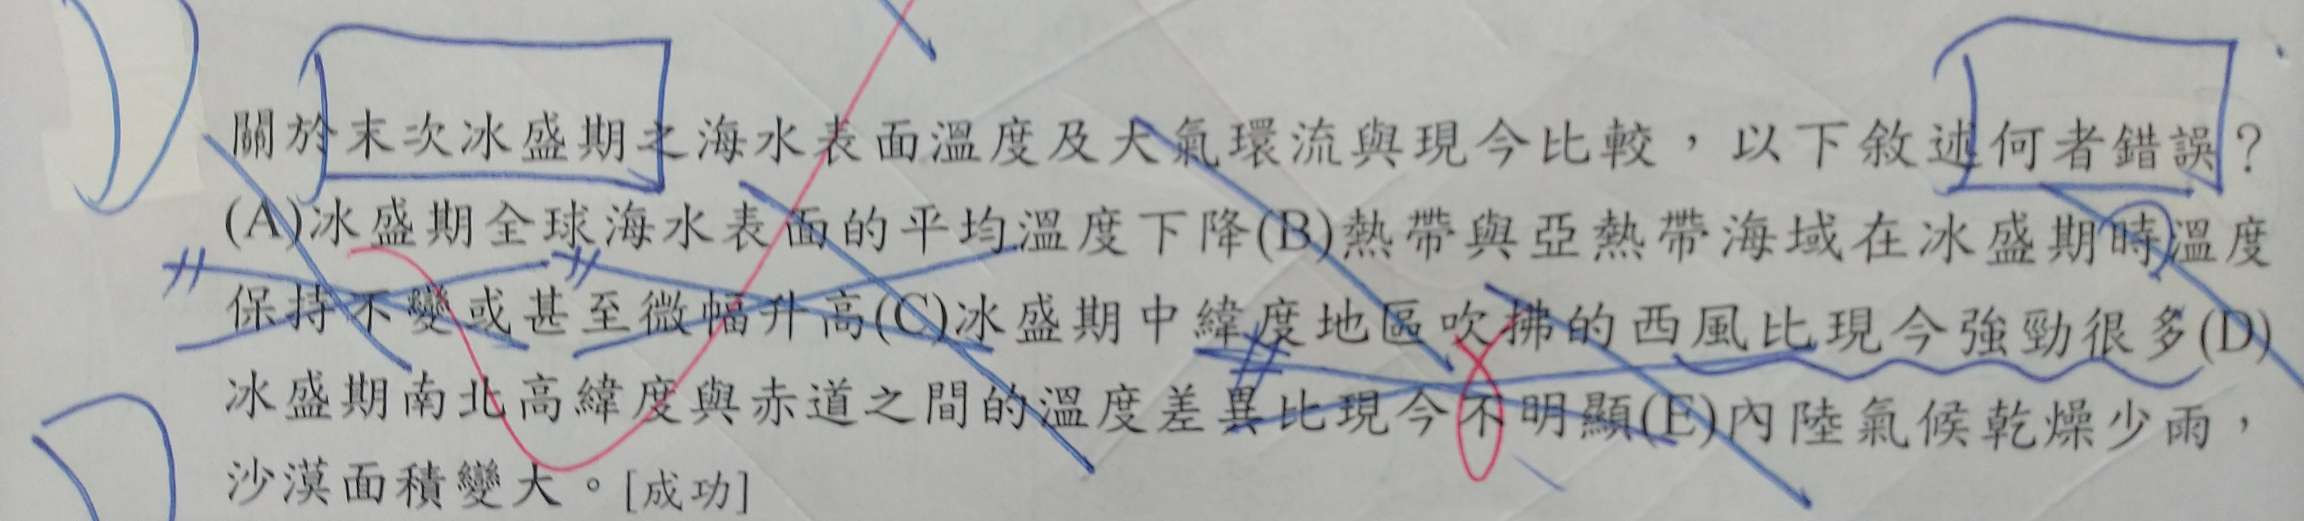 關於末次冰盛期之海水表面溫度及大氣環流與現今比較，以下敘述何者錯誤？
(A)冰盛期全球海水表面的平均溫度下降(B)熱帶與亞熱帶海域在冰盛期時溫度
保持不變或甚至微幅升高(C)冰盛期中緯度地區吹拂的西風比現今強勁很多(D)
冰盛期南北高緯度與赤道之間的溫度差異比現今不明顯(E)內陸氣候乾燥少雨，
沙漠面積變大。[成功]